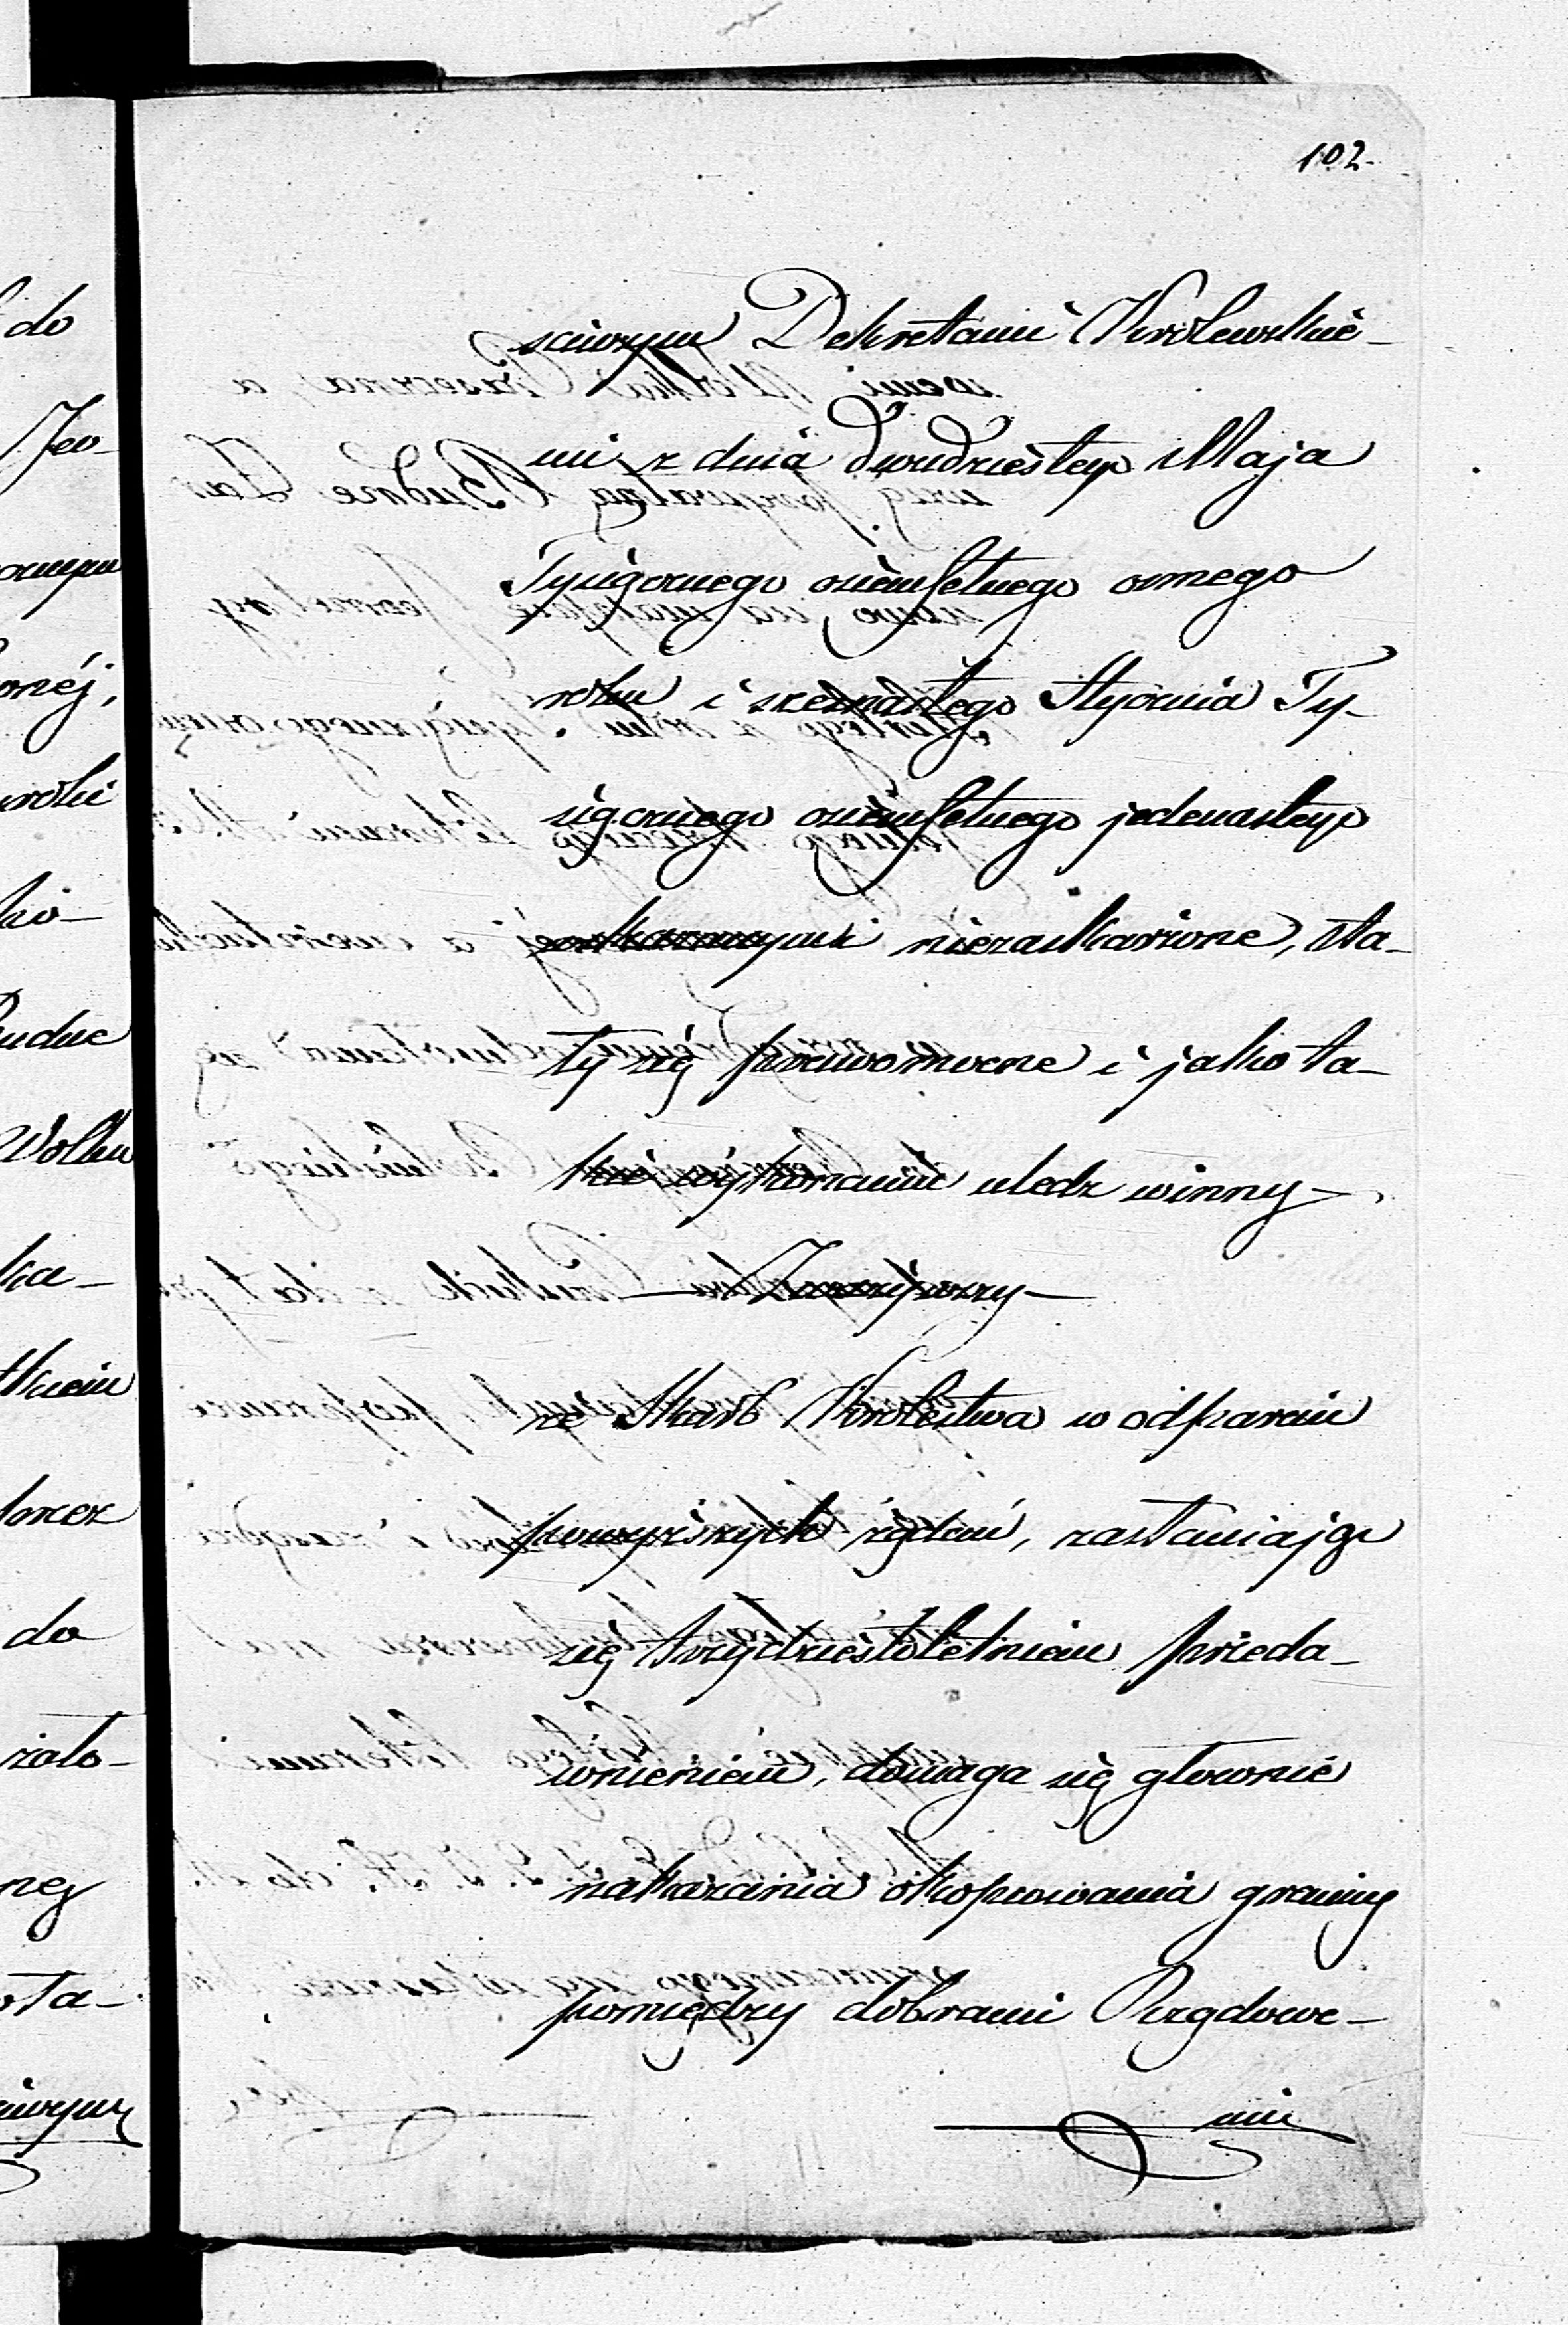 102.
sciwszym Dekretami Krolewskie-
mi z dnia dwudziestego Maja
Tysiącznego ośiemsetnego osmego
roku i szesnastego Stycznia Ty-
siącznego ośiemsetnego jedenastego
niezaskarżone, sta-
ły się prawomocne i jako ta-
kie wykonaniu uledz winny —
— Zważywszy —
że Skarb Krolestwa w odparciu
powyższych żądań, zasłaniając
się trzydziestoletniem przeda-
wnieniem, domaga się głownie
nakazania okopcowania granicy
pomiędzy dobrami Rządowe-
mi